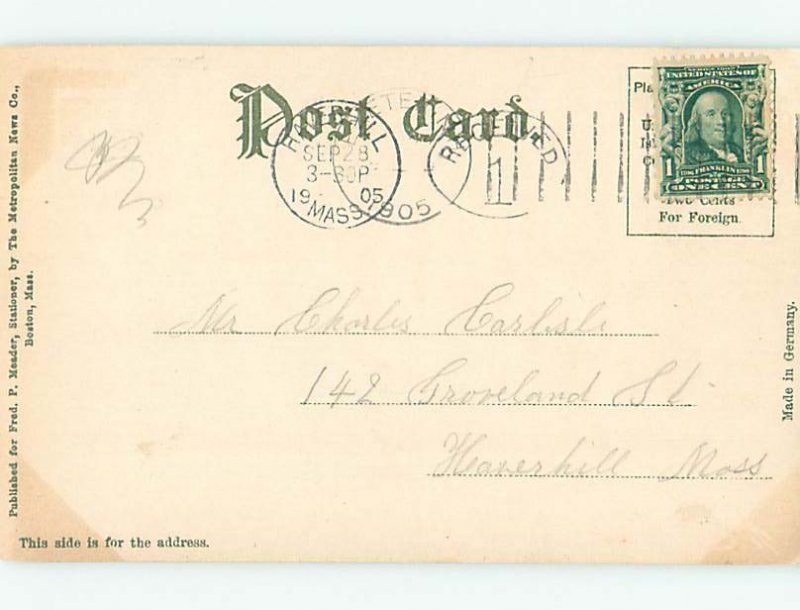 Post Card.
HAVERHILL
SEP 28
3-30P
1905
MASS.
1905
RECEIVED
1
UNITED STATES OF
AMERICA
1 1
POSTAGE
ONE CENT
Two Cents
For Foreign.
Mr Charles Carlisle
142 Groveland St.
Haverhill Mass
Published for Fred. P. Meader, Stationer, by The Metropolitan News Co.,
Boston, Mass.
Made in Germany.
This side is for the address.